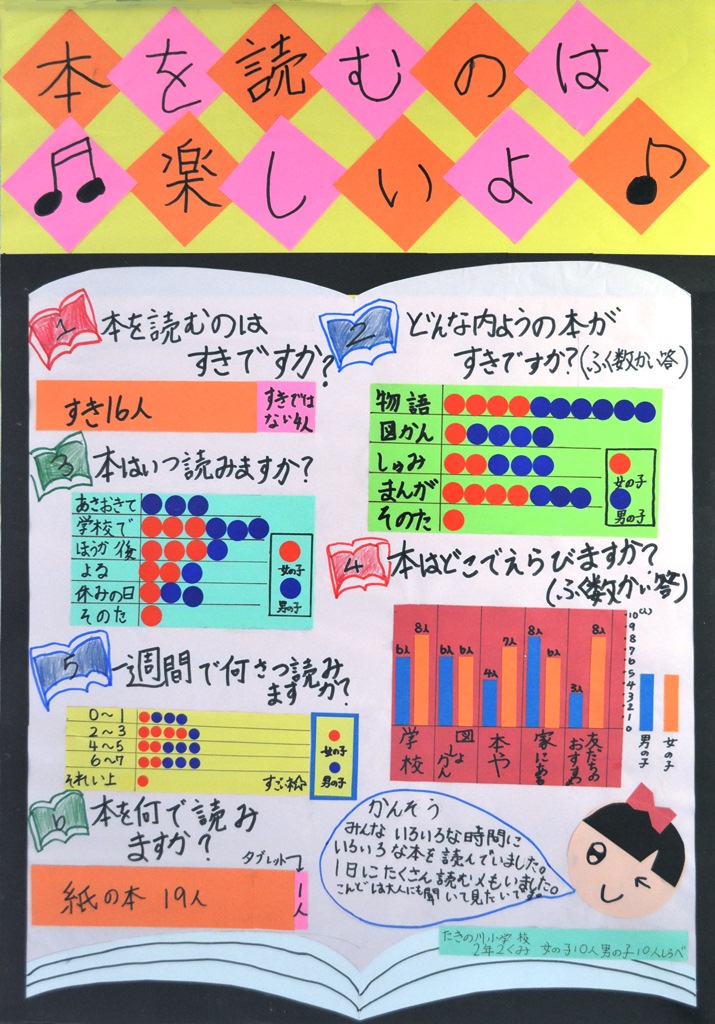 本を読むのは
楽しいよ
1 本を読むのは
すきですか?
すき16人
すきでは
ない4人
2 どんな内ようの本が
すきですか?(ふく数かい答)
物語
図かん
しゅみ
まんが
そのた
女の子
男の子
3 本はいつ読みますか?
あさおきて
学校で
ほうか後
よる
休みの日
そのた
女の子
男の子
4 本はどこでえらびますか?
(ふく数かい答)
6人 8人 6人 6人 4人 7人 8人 6人 3人 8人
10(人)
9
8
7
6
5
4
3
2
1
0
学校
図しょかん
本や
家にある
友だちのおすすめ
男の子
女の子
5 一週間で何さつ読み
ますか?
0〜1
2〜3
4〜5
6〜7
それい上
すごい☆
女の子
男の子
6 本を何で読み
ますか?
タブレット
紙の本 19人
1人
かんそう
みんな いろいろな時間に
いろいろな本を読んでいました。
1日にたくさん読む人もいました。
こんどは大人にも聞いて見たいです。
たきの川小学校
2年2くみ 女の子10人男の子10人しらべ